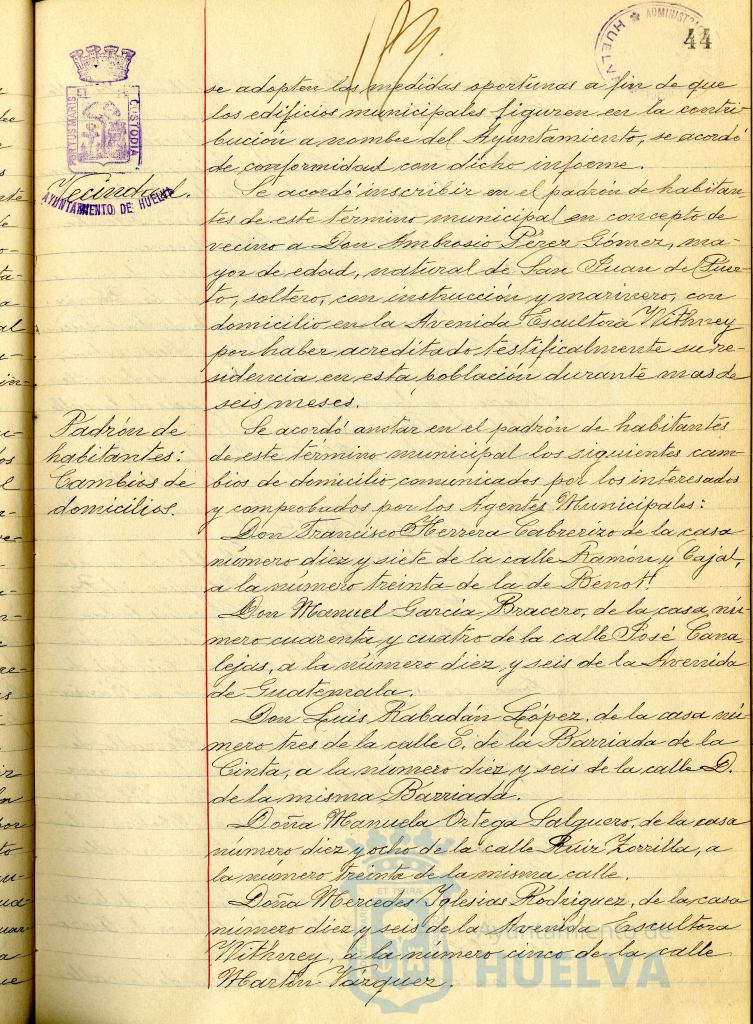 44
ADMINISTR
HUELVA
PORTUS MARIS
CUSTODIA
AYUNTAMIENTO DE HUELVA
se adopten las medidas oportunas a fin de que
los edificios municipales figuren en la contri-
bución a nombre del Ayuntamiento, se acordó
de conformidad con dicho informe.
Vecindad.
Se acordó inscribir en el padrón de habitan-
tes de este término municipal en concepto de
vecino a Don Ambrosio Pérez Gómez, ma-
yor de edad, natural de San Juan de Puer-
to, soltero, con instrucción y marinero, con
domicilio en la Avenida Escultora Withney
por haber acreditado testificalmente su re-
sidencia en esta población durante mas de
seis meses.
Padrón de
habitantes:
Cambios de
domicilios.
Se acordó anotar en el padrón de habitantes
de este término municipal los siguientes cam-
bios de domicilio comunicados por los interesados
y comprobados por los Agentes Municipales:
Don Francisco Herrera Cabrerizo de la casa
número diez y siete de la calle Ramón y Cajal,
a la número treinta de la de Berrot.
Don Manuel García Bracero, de la casa nú-
mero cuarenta y cuatro de la calle José Cana-
lejas, a la número diez y seis de la Avenida
de Guatemala.
Don Luis Rabadán López, de la casa nú-
mero tres de la calle E. de la Barriada de la
Cinta, a la número diez y seis de la calle D.
de la misma Barriada.
Doña Manuela Ortega Salguero, de la casa
número diez y ocho de la calle Ruiz Zorrilla, a
la número treinta de la misma calle.
Doña Mercedes Iglesias Rodriguez, de la casa
número diez y seis de la Avenida Escultora
Withney, a la número cinco de la calle
Martín Vazquez.
Ayuntamiento de
HUELVA